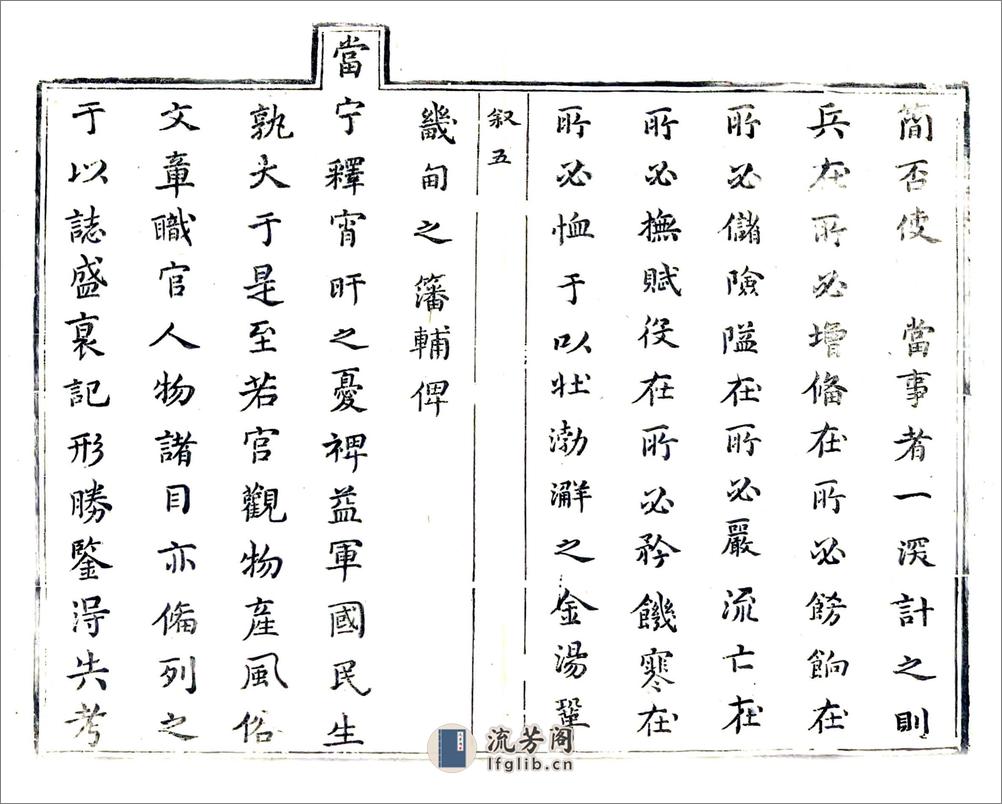 簡否使 當事者一深計之則
兵在所必增偹在所必餝餉在
所必儲險隘在所必嚴流亡在
所必撫賦役在所必矜饑寒在
所必恤于以壯渤澥之金湯鞏
叙五
畿甸之籓輔俾
當宁釋宵旰之憂裨益軍國民生
孰大于是至若官觀物產風俗
文章職官人物諸目亦偹列之
于以誌盛衰記形勝鑒淂失考
流芳阁
lfglib.cn